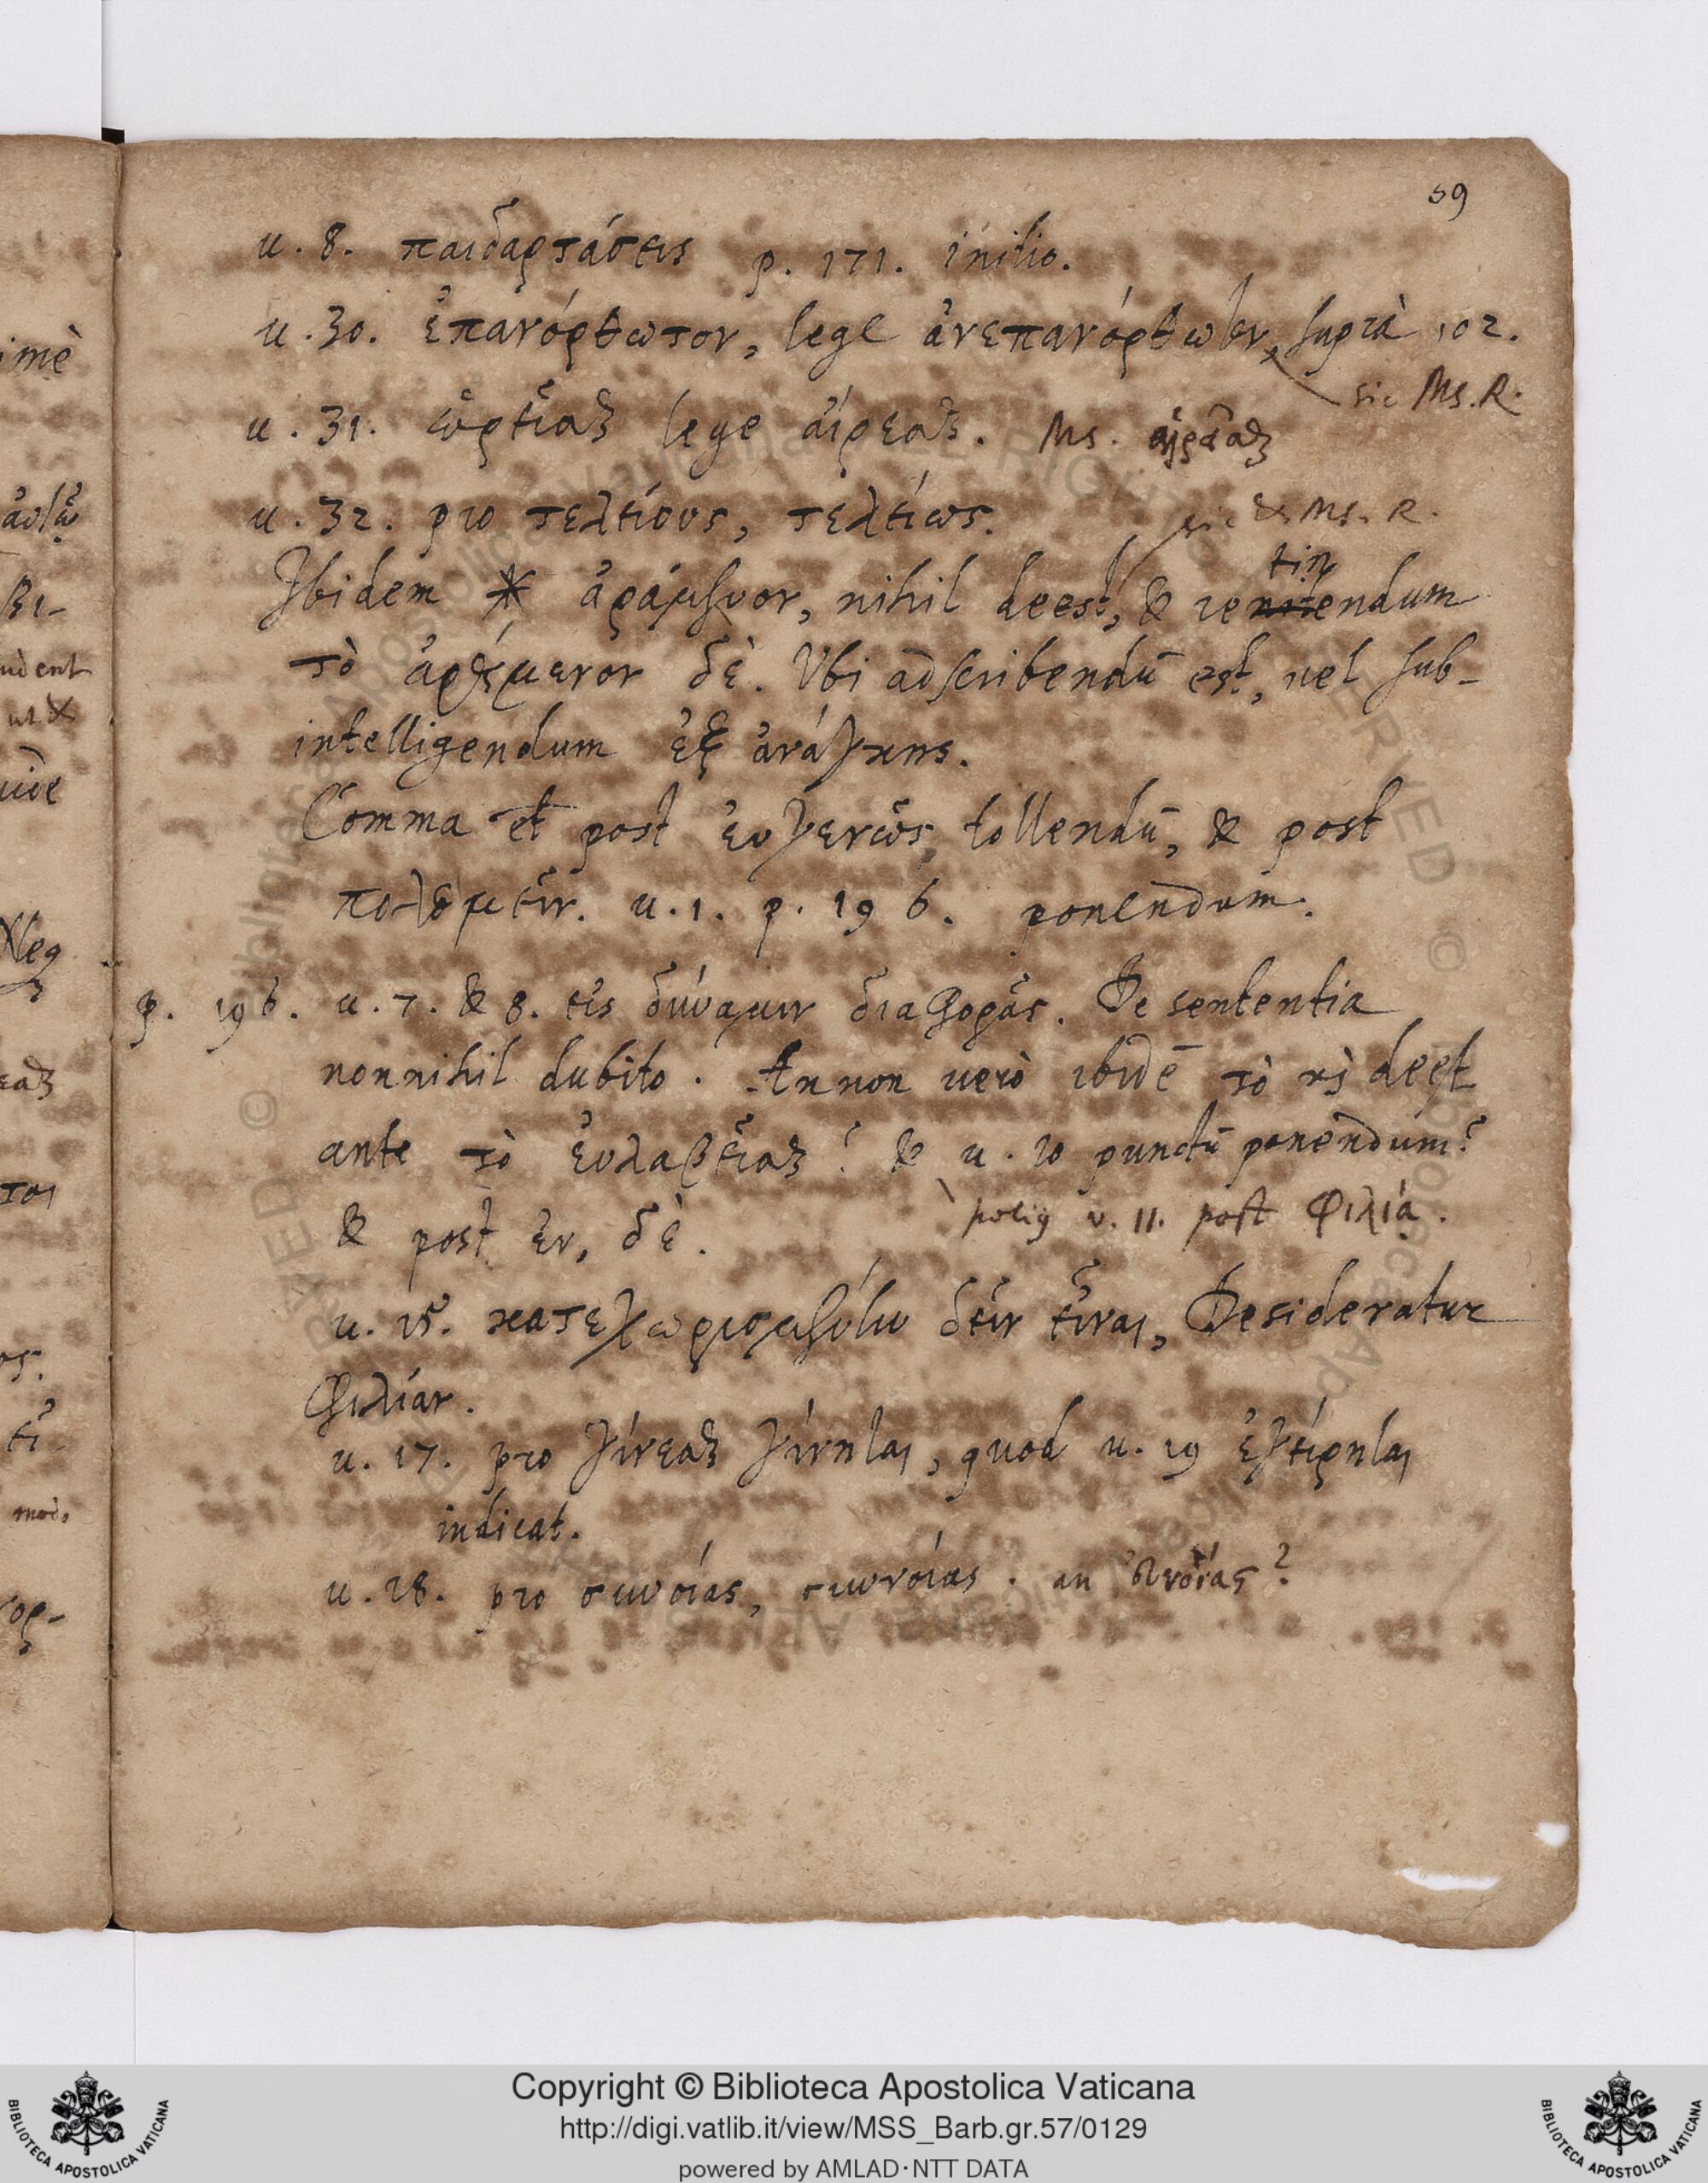 59
u. 8. παιδαρτάσεις p. 171. initio.
u. 30. ἐπανόρθωτον, lege ἀνεπανόρθωτον, suprà 102.
sic Ms. R.
u. 31. lege αἵρεσθαι. Ms. αἱρεῖσθαι
u. 32. pro τελείους, τελείως.
sic & Ms. R.
Ibidem * ἀράμενον, nihil deest, & retinendum
τὸ ἀράμενον δὲ. Vbi adscribendū est, uel sub-
intelligendum ἐξ ἀνάγκης.
Comma et post εὐγενῶς, tollendū, & post
πολεμεῖν. u. 1. p. 196. ponendum.
p. 196. u. 7. & 8. εἰς δύναμιν διαφορᾶς. De sententia
nonnihil dubito. An non uerò ibidē τὸ καὶ deest
ante τὸ εὐλαβεῖσθαι? & u. 10 punctū ponendum?
potius v. 11. post Φιλία.
& post ἐν, δὲ.
u. 15. κατεχωρισμένην δεῖν εἶναι, Desideratur
φιλίαν.
u. 17. pro γίνεσθαι γίνηται, quod u. 19 ἐγείρηται
indicat.
u. 28. pro συνοίας, συννοίας. an
imè
βι-
ident
ut &
uide
Neg
εσθαι
τοι
ος.
modo
Copyright © Biblioteca Apostolica Vaticana
http://digi.vatlib.it/view/MSS_Barb.gr.57/0129
powered by AMLAD·NTT DATA
BIBLIOTECA APOSTOLICA VATICANA
BIBLIOTECA APOSTOLICA VATICANA